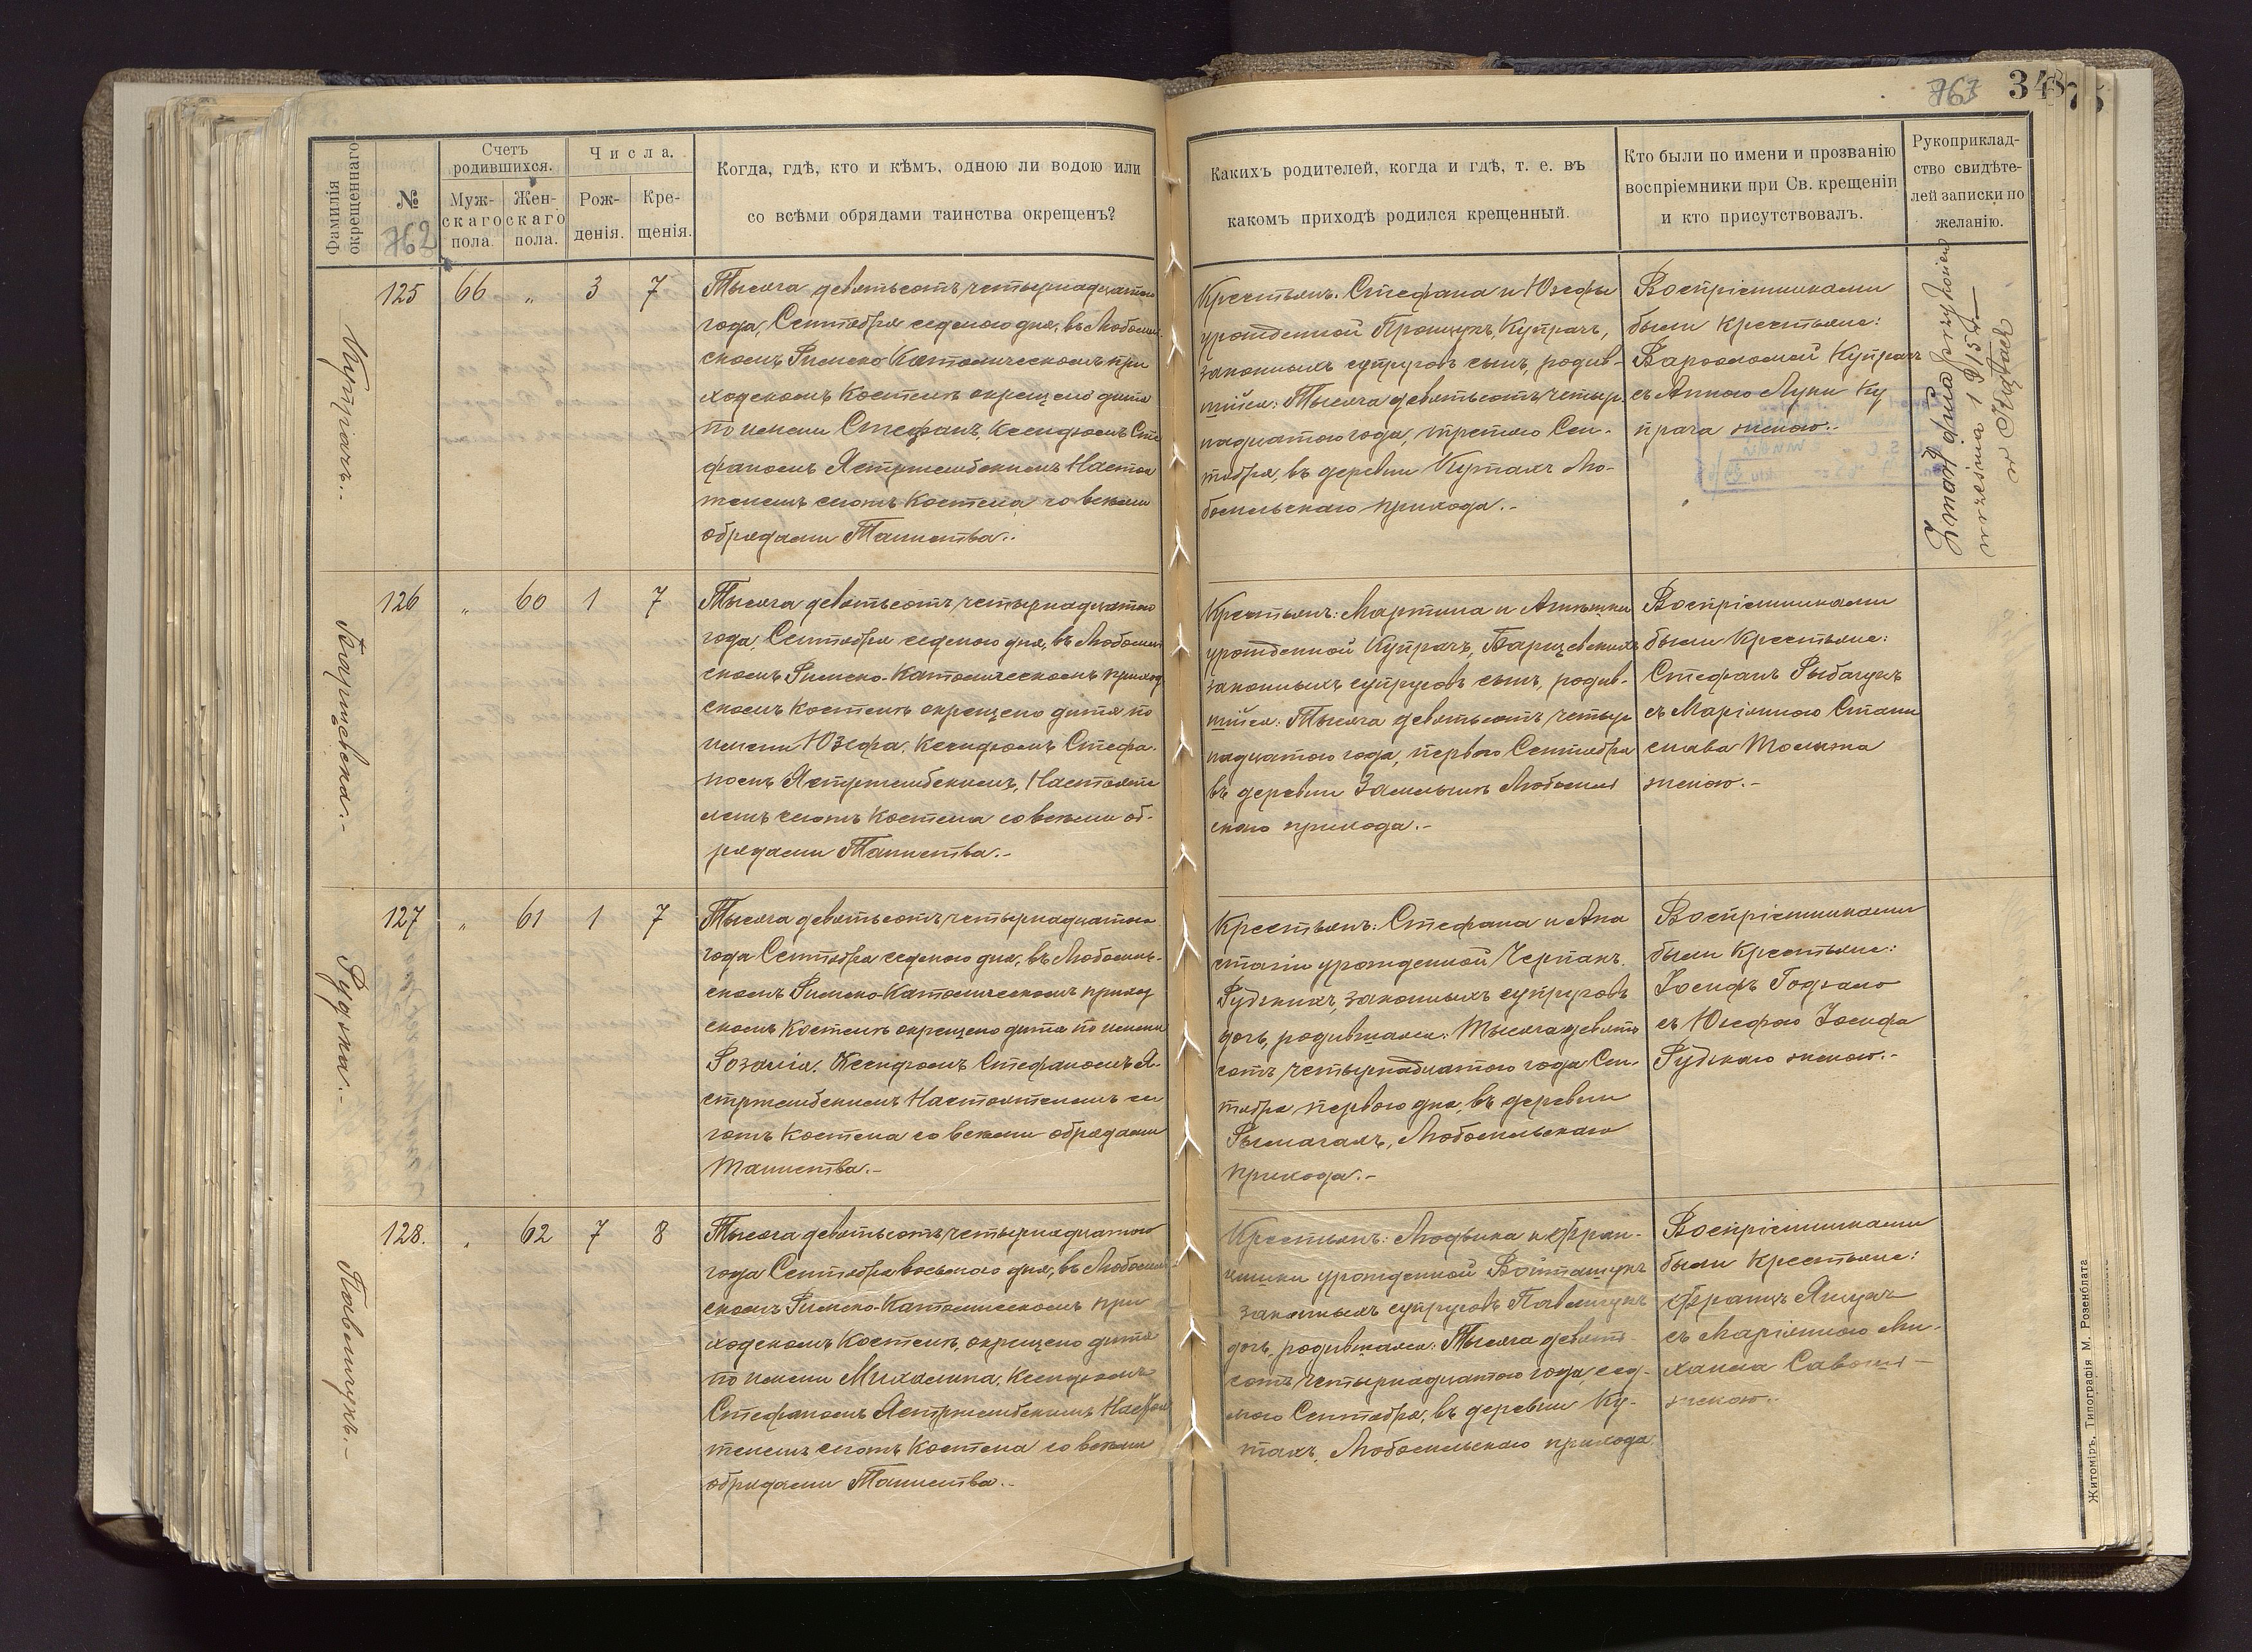 763 348
Фамилія окрещеннаго
№
762
Счетъ родившихся.
Мужскаго пола.
Женскаго пола.
Числа.
Рожденія.
Крещенія.
Когда, гдѣ, кто и кѣмъ, одною ли водою или
со всѣми обрядами таинства окрещенъ?
Какихъ родителей, когда и гдѣ, т. е. въ
какомъ приходѣ родился крещенный.
Кто были по имени и прозванію
воспріемники при Св. крещеніи
и кто присутствовалъ.
Рукоприклад-
ство свидѣте-
лей записки по
желанію.
Купрачъ.
125 66 „ 3 7
Тысяча девятьсотъ четырнадцатаго
года, Сентября седьмого дня, въ Любомль
скомъ Римско-Католическомъ при
ходскомъ Костелѣ окрещено дитя
по имени Стефанъ, Ксендзомъ Сте
фаномъ Ястржембскимъ Настоя
телемъ сего Костела со всѣми
обрядами Таинства.
Крестьянъ: Стефана и Юзефы
урожденной Прощукъ, Купрачъ,
законныхъ супруговъ сынъ, родив-
шійся: Тысяча девятьсотъ четыр
надцатого года, третьяго Сен-
тября, въ деревни Кутахъ Лю-
бомльскаго прихода.-
Воспріемниками
были крестьяне:
Варфоломей Купрачъ
съ Анною Луки Ку
прача женою.-
Zmarł dnia
września 1915 r.
w Kątach
Барщевская.-
126 „ 60 1 7
Тысяча девятьсотъ четырнадцатаго
года, Сентября седьмого дня, въ Любомль
скомъ Римско-Католическомъ приход
скомъ Костелѣ окрещено дитя по
имени Юзефа, Ксендзомъ Стефа-
номъ Ястржембскимъ, Настояте
лемъ сего Костела со всѣми об-
рядами Таинства.-
Крестьянъ: Мартина и Агнешки
урожденной Купрачъ, Барщевскихъ
законныхъ супруговъ сынъ, родив-
шійся: Тысяча девятьсотъ четыр
надцатого года, первого Сентября
въ деревни Любомль
скаго прихода.-
Воспріемниками
были Крестьяне:
Стефанъ Рыбачукъ
съ Маріянною Стани
слава
женою.-
Рудзкая.-
127 „ 61 1 7
Тысяча девятьсотъ четырнадцатаго
года Сентября седьмого дня, въ Любомль-
скомъ Римско-Католическомъ приход
скомъ Костелѣ окрещено дитя по имени
Розалія, Ксендзомъ Стефаномъ Я-
стржембскимъ Настоятелемъ се
готь Костела со всѣми обрядами
Таинства.-
Крестьянъ: Стефана и Ана
стазіи урожденной Черпакъ,
Рудзкихъ, законныхъ супруговъ
дочь, родившаяся: Тысяча девять
сотъ четырнадцатого года Сен-
тября первого дня, въ деревни
Рымачахъ, Любомльскаго
прихода.-
Воспріемниками
были Крестьяне:
Іосифъ
съ Юзефою Іосифа
Рудзкаго женою.-
Павлищукъ.-
128. „ 62 7 8
Тысяча девятьсотъ четырнадцатаго
года Сентября восьмого дня, въ Любомль-
скомъ Римско-Католическомъ при
ходскомъ Костелѣ, окрещено дитя
по имени Михалина, Ксендзомъ
Стефаномъ Ястржембскимъ Настоя
телемъ сего Костела со всѣми
обрядами Таинства.-
Крестьянъ: Людвика и Фран-
цишки урожденной
законныхъ супруговъ Павлищукъ
дочь, родившаяся: Тысяча девять-
сотъ четырнадцатого года, сед-
мого Сентября, въ деревни Ку-
тахъ, Любомльскаго прихода.
Воспріемниками
были Крестьяне:
Францъ
съ Маріянною Ми-
хаила
женою.-
Житоміръ. Типографія М. Розенблата